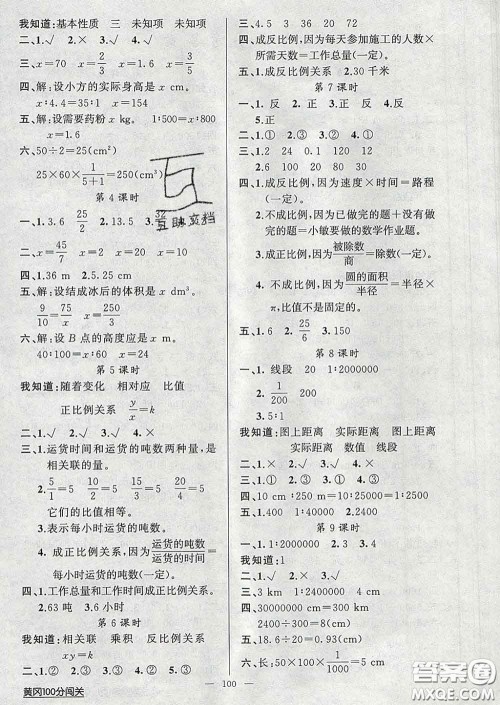 我知道:基本性质 三 未知项 未知项
二、1.√ 2.√ 3.√ 4.√
三、x=70 x=3/2 x=3 x=5/3
四、解:设小方的实际身高是 x cm。
x∶4.4=35∶1 x=154
五、解:设需要药粉 x kg。 1∶500=x∶800
x=1.6
六、50÷2=25(cm²)
25×60×1/(5+1)=250(cm³)
第 4 课时
一、1.3.6 25/2 2.13.5
二、x=45/7 x=2
四、1.36 m 2.5.25 cm
五、解:设结成冰后的体积是 x dm³。
9/10=75/x x=250/3
六、解:设 B 点的高度应是 x m。
40∶100=x∶60 x=24
第 5 课时
我知道:随着变化 相对应 比值
正比例关系 y/x=k
二、1.√ 2.√ 3.√ 4.×
三、1.运货时间和运货的吨数两种量,是
相关联的量。
2. 5/1=5 10/2=5 15/3=5 20/4=5
它们的比值相等。
3.表示每小时运货的吨数。
4. 成正比例关系,因为运货的吨数/运货的时间=
每小时运货的吨数(一定)。
四、1.工作总量和工作时间成正比例关系。
2.63 吨 3.6 小时
第 6 课时
我知道:相关联 乘积 反比例关系
xy=k
二、1.② 2.① 3.① 4.③ 5.②
黄冈100分闯关
三、4.5 3 36 20 72
四、1.√ 2.×
五、1.成反比例,因为每天参加施工的人数×
所需天数=工作总量(一定)。
六、1.成反比例关系 2.30 千米
第 7 课时
一、1.反 2.正 3.正 4.反 5.反
6.正
二、1.① 2.③ 3.② 4.①
三、1.2 24 0.1 120
2.6 100 20 30 80
四、1.成反比例,因为速度×时间=路程
(一定)。
2.不成比例,因为已做完的题+没有做
完的题=小敏要做的数学作业题。
3.成正比例,因为被除数/商=除数(一定)。
4. 不成比例,因为圆的面积/半径=半径×
π,比值不是固定的。
五、1.6 2.25/6 3.150
第 8 课时
一、1.线段 20 1∶2000000
2.1/200 200
6.5∶1
我知道:图上距离 实际距离 图上距离
实际距离 数值 线段
二、1.× 2.√ 3.×
三、1.② 2.③ 3.①
四、10 cm∶250 m=1∶2500
五、1.1∶400 2.1∶4000
六、10 cm∶50 m=10∶5000=1∶500
第 9 课时
一、1.1∶2000000 2.7 3.4
我知道:1
二、1.③ 2.②
三、3 km 1∶2400000 4 cm
四、30000000 cm=300 km
2400÷300=8(cm)
五、18.6÷20=0.93(cm)